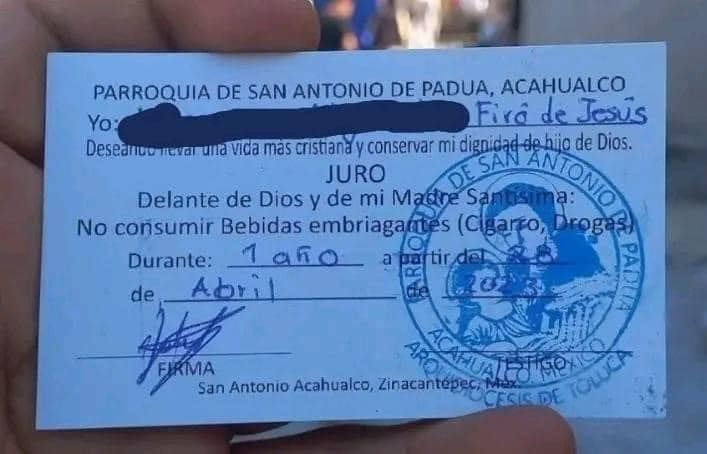 PARROQUIA DE SAN ANTONIO DE PADUA, ACAHUALCO
Yo: Firo de Jesús
Deseando llevar una vida más cristiana y conservar mi dignidad de hijo de Dios.
JURO
Delante de Dios y de mi Madre Santísima:
No consumir Bebidas embriagantes (Cigarro, Drogas)
Durante: 1 año a partir del 28
de Abril de 2023
FIRMA TESTIGO
San Antonio Acahualco, Zinacantepec, Méx.
PARROQUIA DE SAN ANTONIO D PADUA
ACAHUALCO, MÉXICO
ARQUIDIOCESIS DE TOLUCA